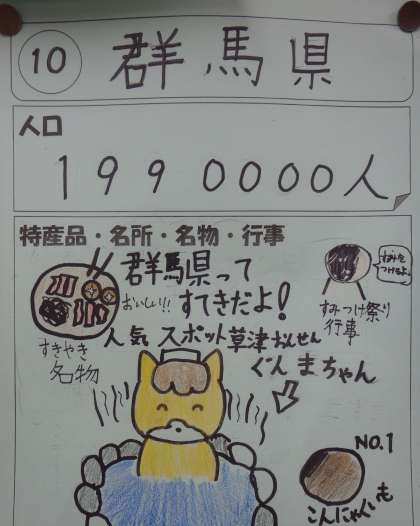 10
群馬県
人口
1990000人
特産品・名所・名物・行事
群馬県って
おいしい!!
すてきだよ!
すみを
つけるよ。
すみつけ祭り
行事
すきやき
名物
人気スポット草津おんせん
ぐんまちゃん
NO.1
こんにゃくいも